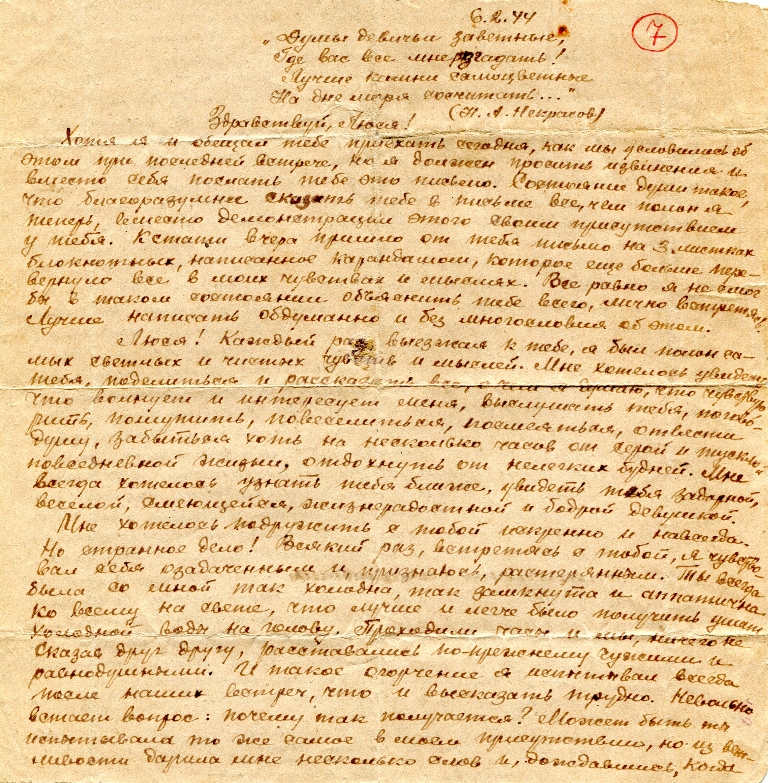 6.2.44
7
„Думы девичьи заветные,
Где вас все мне разгадать!
Лучше камни самоцветные
На дне моря сосчитать..."
Здравствуй, Люся! (Н. А. Некрасов)
Хотя я и обещал тебе приехать сегодня, как мы условились об
этом при последней встрече, но я должен просить извинения и
вместо себя послать тебе это письмо. Состояние души такое,
что благоразумнее сказать тебе в письме все, чем полон я
теперь, вместо демонстрации этого своим присутствием
у тебя. Кстати вчера пришло от тебя письмо на 3 листках
блокнотных, написанное карандашом, которое еще больше пере-
вернуло все в моих чувствах и мыслях. Все равно я не смог
бы в таком состоянии объяснить тебе всего, лично встретясь.
Лучше написать обдуманно и без многословия об этом.
Люся! Каждый раз выезжая к тебе, я был полон са-
мых светлых и чистых чувств и мыслей. Мне хотелось увидеть
тебя, поделиться и рассказать все, о чем я думаю, что чувствую
что волнует и интересует меня, выслушать тебя, погово-
рить, пошутить, повеселиться, посмеяться, отвести
душу, забыться хоть на несколько часов от серой и тусклой
повседневной жизни, отдохнуть от нелегких будней. Мне
всегда хотелось узнать тебя ближе, увидеть тебя задорной,
веселой, смеющейся, жизнерадостной и бодрой девушкой.
Мне хотелось подружить с тобой искренно и навсегда.
Но странное дело! Всякий раз, встретясь с тобой, я чувство-
вал себя озадаченным и, признаюсь, растерянным. Ты всегда
была со мной так холодна, так замкнута и аппатична
ко всему на свете, что лучше и легче было получить ушат
холодной воды на голову. Проходили часы и мы, ничего не
сказав друг другу, расставались по-прежнему чужими и
равнодушными. И такое огорчение я испытывал всегда
после наших встреч, что и высказать трудно. Невольно
встает вопрос: почему так получается? Может быть ты
испытывала то же самое в моем присутствии, но из веж-
ливости дарила мне несколько слов и, дождавшись, когда